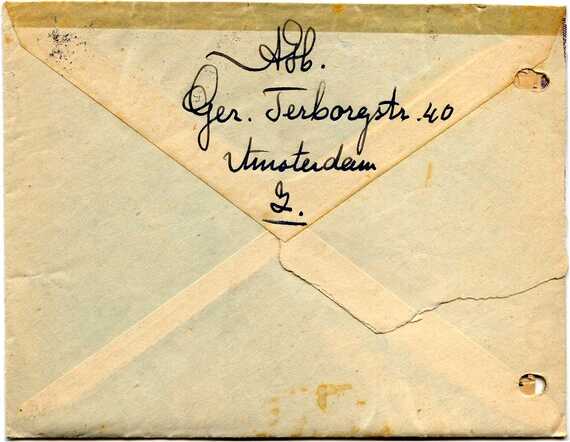 Afb.
Ger. Terborgstr. 40
Amsterdam
Z.